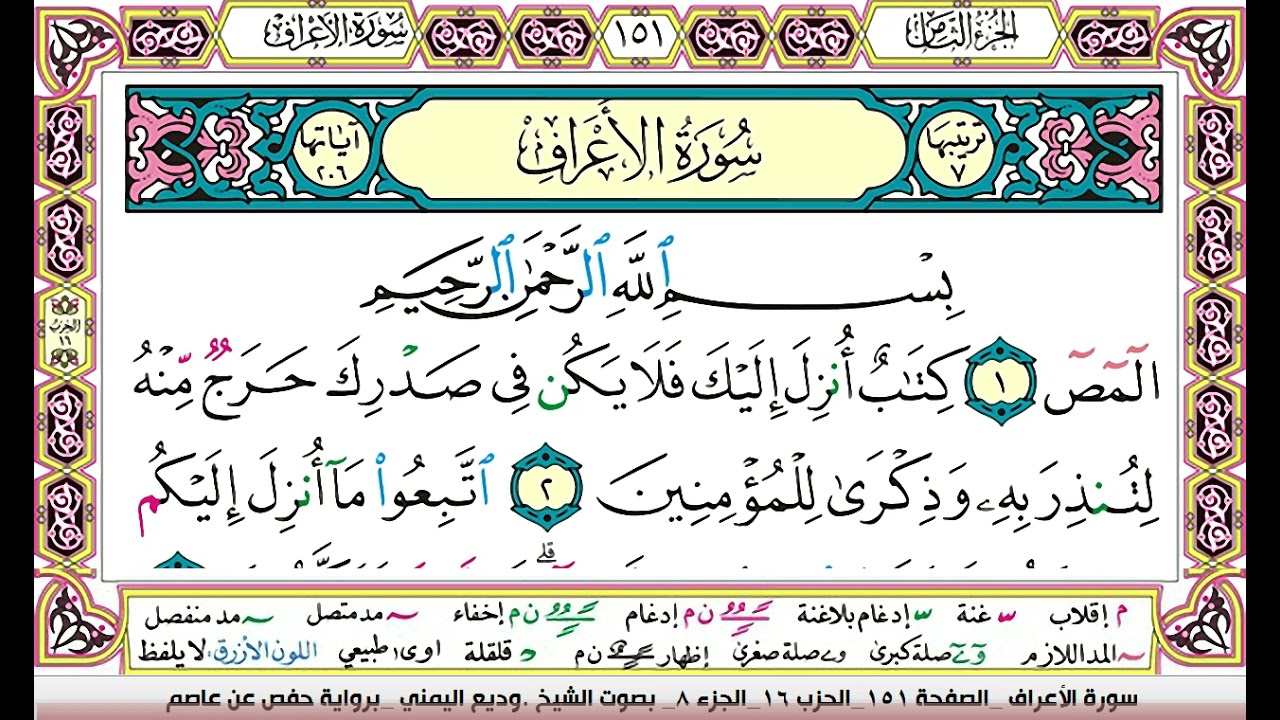 الجزء الثامن ١٥١ سورة الأعراف
ترتيبها ٧ سُورَةُ الأَعْرَافِ آياتها ٢٠٦
بِسْمِ ٱللَّهِ ٱلرَّحْمَٰنِ ٱلرَّحِيمِ
الٓمٓصٓ ١ كِتَٰبٌ أُنزِلَ إِلَيْكَ فَلَا يَكُن فِى صَدْرِكَ حَرَجٌ مِّنْهُ
لِتُنذِرَ بِهِۦ وَذِكْرَىٰ لِلْمُؤْمِنِينَ ٢ ٱتَّبِعُوا۟ مَآ أُنزِلَ إِلَيْكُم
الحزب ١٦
م إقلاب غنة إدغام بلاغنة ن م إدغام ن م إخفاء مد متصل مد منفصل
المد اللازم صلة كبرى صلة صغرى إظهار ن م قلقلة اوى طبيعي اللون الأزرق: لا يلفظ
سورة الأعراف _الصفحة ١٥١_الحزب ١٦_الجزء ٨_ بصوت الشيخ .وديع اليمني _برواية حفص عن عاصم